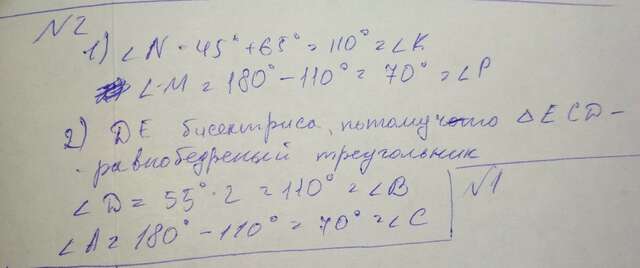 №2
1) ∠N - 45° + 65° = 110° = ∠K
∠M = 180° - 110° = 70° = ∠P
2) DE бисектриса, потому что △ECD -
- равнобедреный треугольник
∠D = 55° · 2 = 110° = ∠B
∠A = 180° - 110° = 70° = ∠C
№1